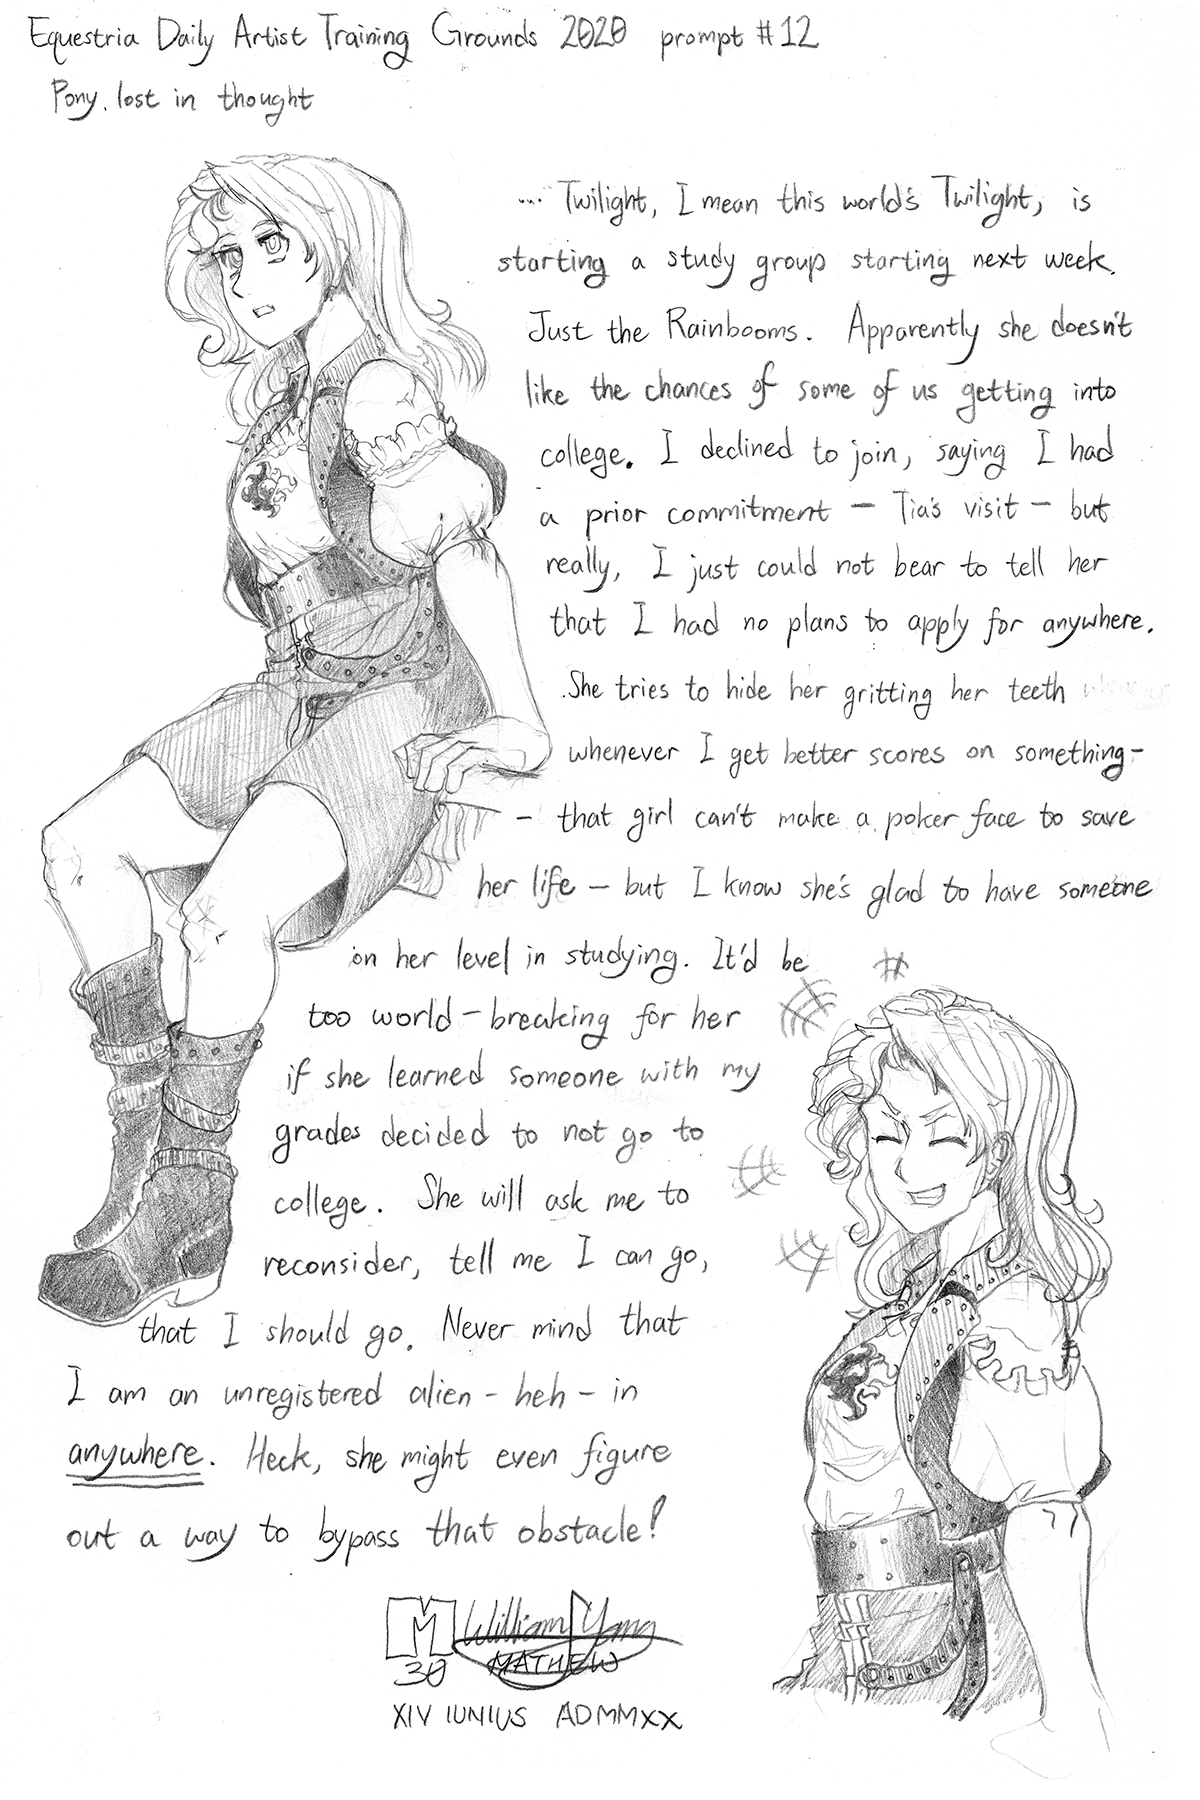 Equestria Daily Artist Training Grounds 2020 prompt #12
Pony, lost in thought
... Twilight, I mean this world's Twilight, is
starting a study group starting next week.
Just the Rainbooms. Apparently she doesn't
like the chances of some of us getting into
college. I declined to join, saying I had
a prior commitment – Tia's visit – but
really, I just could not bear to tell her
that I had no plans to apply for anywhere.
She tries to hide her gritting her teeth
whenever I get better scores on something –
– that girl can't make a poker face to save
her life – but I know she's glad to have someone
on her level in studying. It'd be
too world-breaking for her
if she learned someone with my
grades decided to not go to
college. She will ask me to
reconsider, tell me I can go,
that I should go. Never mind that
I am an unregistered alien – heh – in
anywhere. Heck, she might even figure
out a way to bypass that obstacle!
M William Yang
30 MATHEW
XIV IUNIUS ADMMXX